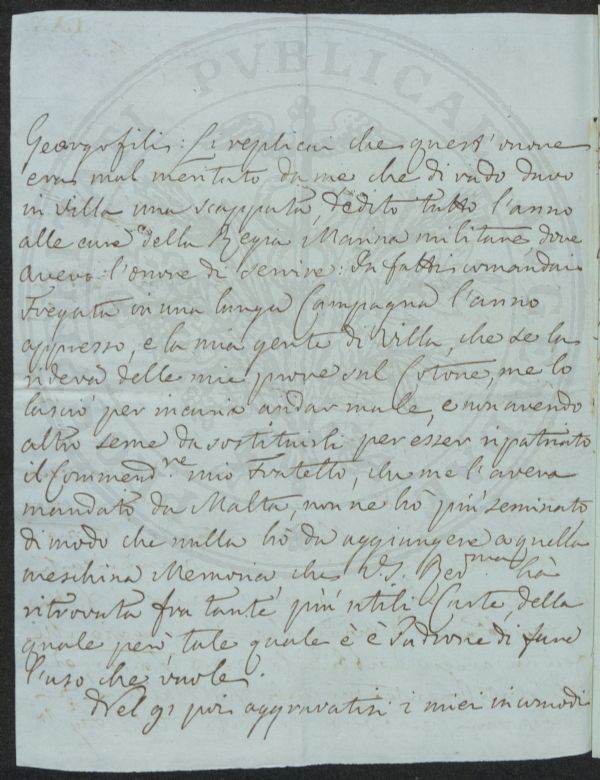 Georgofili: Li replicai che quest'onore
era mal meritato da me che di rado davo
in Villa una scapputa, dedito tutto l'anno
alle cure della Regia Marina militare, dove
avevo l'onore di servire: Infatti comandai
Fregata in una lunga Campagna l'anno
appresso, e la mia gente di Villa, che se la
rideva delle mie prove sul Cotone, me lo
lasciò per incuria andar male, e non avendo
altro seme da sostituirli per esser ripatriato
il Commend.re mio Fratello, che me l'aveva
mandato da Malta non ne hò più seminato,
di modo che nulla hò da aggiungere a quella
meschina Memoria, che V.S. Rev.ma hà
ritrovata fra tante più utili Carte, della
quale però, tale quale è è Padrone di fare
l'uso che vuole.
Nel 91 poi aggravatisi i miei incomodi